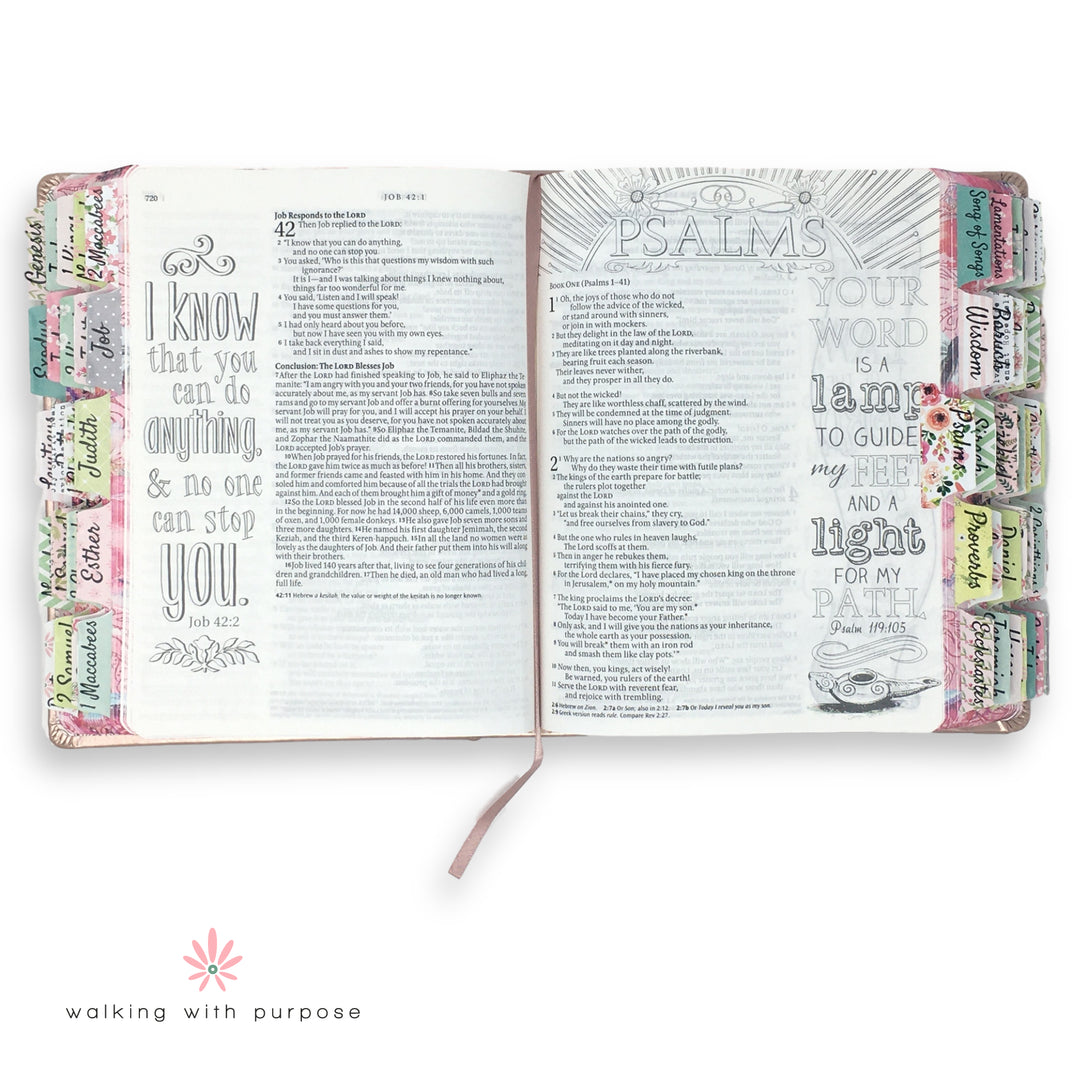 720
JOB 42:1
I KNOW
that you
can do
anything,
& no one
can stop
YOU.
Job 42:2
Job Responds to the LORD
42 Then Job replied to the LORD:
2 "I know that you can do anything,
and no one can stop you.
3 You asked, 'Who is this that questions my wisdom with such
ignorance?'
It is I—and I was talking about things I knew nothing about,
things far too wonderful for me.
4 You said, 'Listen and I will speak!
I have some questions for you,
and you must answer them.'
5 I had only heard about you before,
but now I have seen you with my own eyes.
6 I take back everything I said,
and I sit in dust and ashes to show my repentance."
Conclusion: The LORD Blesses Job
7 After the LORD had finished speaking to Job, he said to Eliphaz the Te
manite: "I am angry with you and your two friends, for you have not spoken
accurately about me, as my servant Job has. 8 So take seven bulls and seven
rams and go to my servant Job and offer a burnt offering for yourselves. My
servant Job will pray for you, and I will accept his prayer on your behalf. I
will not treat you as you deserve, for you have not spoken accurately about
me, as my servant Job has." 9 So Eliphaz the Temanite, Bildad the Shuhite,
and Zophar the Naamathite did as the LORD commanded them, and the
LORD accepted Job's prayer.
10 When Job prayed for his friends, the LORD restored his fortunes. In fact,
the LORD gave him twice as much as before! 11 Then all his brothers, sisters,
and former friends came and feasted with him in his home. And they con
soled him and comforted him because of all the trials the LORD had brought
against him. And each of them brought him a gift of money* and a gold ring.
12 So the LORD blessed Job in the second half of his life even more than
in the beginning. For now he had 14,000 sheep, 6,000 camels, 1,000 teams
of oxen, and 1,000 female donkeys. 13 He also gave Job seven more sons and
three more daughters. 14 He named his first daughter Jemimah, the second
Keziah, and the third Keren-happuch. 15 In all the land no women were as
lovely as the daughters of Job. And their father put them into his will along
with their brothers.
16 Job lived 140 years after that, living to see four generations of his chil
dren and grandchildren. 17 Then he died, an old man who had lived a long,
full life.
42:11 Hebrew a kesitah; the value or weight of the kesitah is no longer known.
PSALMS
BOOK ONE (Psalms 1–41)
1 1 Oh, the joys of those who do not
follow the advice of the wicked,
or stand around with sinners,
or join in with mockers.
2 But they delight in the law of the LORD,
meditating on it day and night.
3 They are like trees planted along the riverbank,
bearing fruit each season.
Their leaves never wither,
and they prosper in all they do.
4 But not the wicked!
They are like worthless chaff, scattered by the wind.
5 They will be condemned at the time of judgment.
Sinners will have no place among the godly.
6 For the LORD watches over the path of the godly,
but the path of the wicked leads to destruction.
2 1 Why are the nations so angry?
Why do they waste their time with futile plans?
2 The kings of the earth prepare for battle;
the rulers plot together
against the LORD
and against his anointed one.
3 "Let us break their chains," they cry,
"and free ourselves from slavery to God."
4 But the one who rules in heaven laughs.
The Lord scoffs at them.
5 Then in anger he rebukes them,
terrifying them with his fierce fury.
6 For the Lord declares, "I have placed my chosen king on the throne
in Jerusalem,* on my holy mountain."
7 The king proclaims the LORD's decree:
"The LORD said to me, 'You are my son.*
Today I have become your Father.*
8 Only ask, and I will give you the nations as your inheritance,
the whole earth as your possession.
9 You will break* them with an iron rod
and smash them like clay pots.'"
10 Now then, you kings, act wisely!
Be warned, you rulers of the earth!
11 Serve the LORD with reverent fear,
and rejoice with trembling.
2:6 Hebrew on Zion. 2:7a Or Son; also in 2:12. 2:7b Or Today I reveal you as my son.
2:9 Greek version reads rule. Compare Rev 2:27.
YOUR
WORD
IS A
lamp
TO GUIDE
my FEET
AND A
light
FOR MY
PATH.
Psalm 119:105
Genesis
2 Maccabees
Job
Judith
Esther
2 Samuel
1 Maccabees
Song of Songs
Lamentations
Wisdom
Baruch
Psalms
Sirach
Ezekiel
Proverbs
Daniel
Ecclesiastes
Jeremiah
walking with purpose